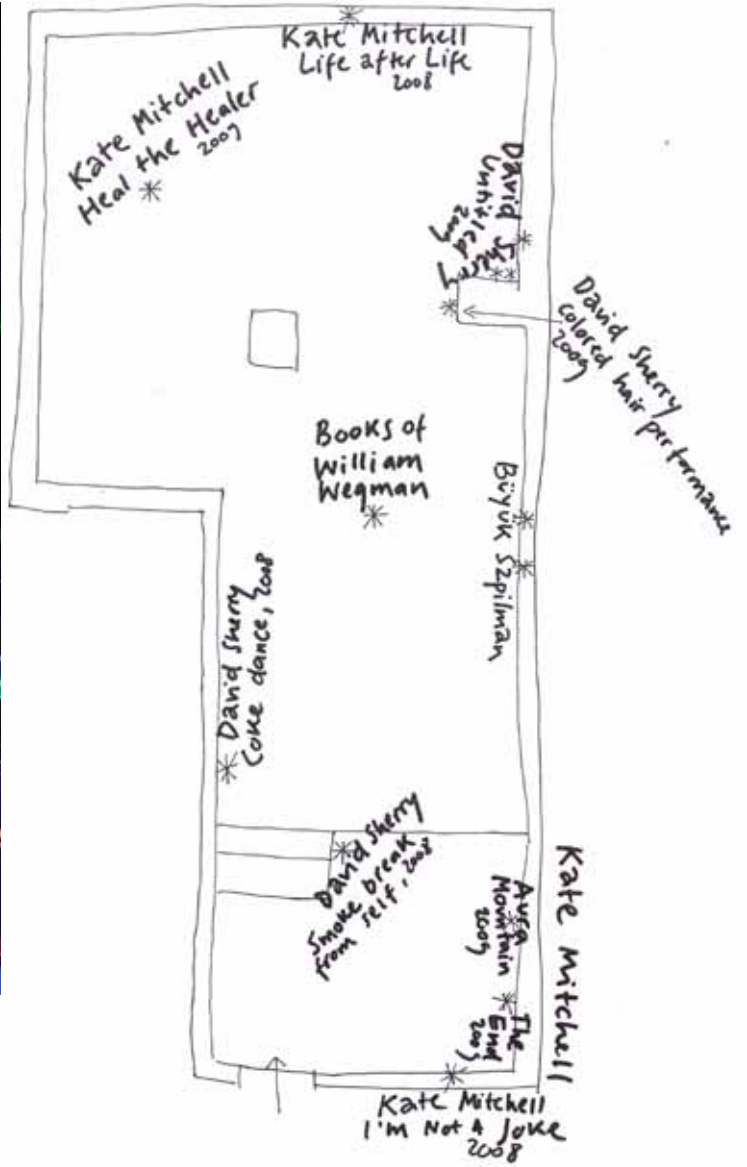 Kate Mitchell
Life after Life
2008
Kate Mitchell
Heal the Healer
2009
David Sherry
Untitled
2009
David Sherry
colored hair performance
2009
Books of
William
Wegman
Büyük Szpilman
David Sherry
Coke dance, 2008
David Sherry
Smoke break
from self, 2008
Kate Mitchell
Aura
Mountain
2009
The
End
2009
Kate Mitchell
I'm Not A Joke
2008